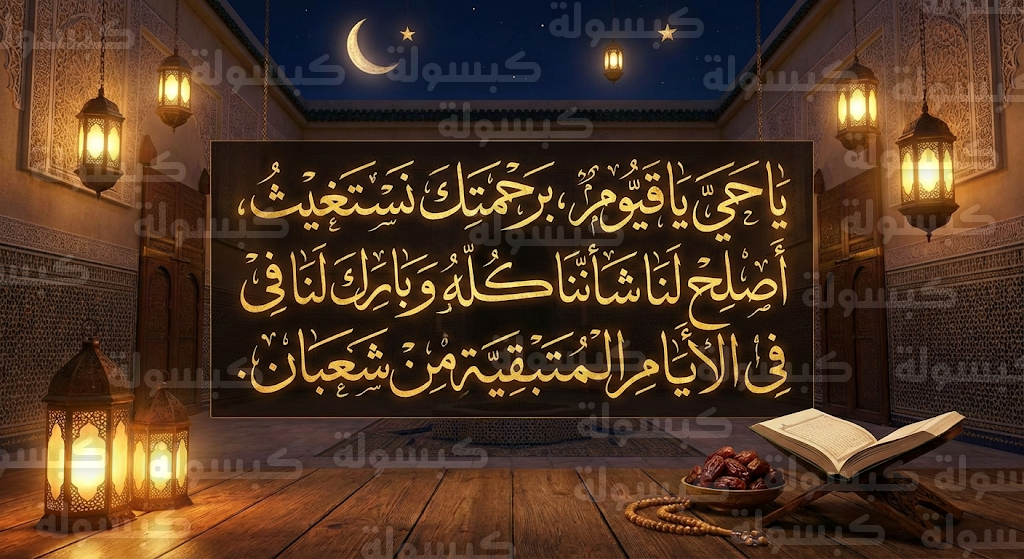 يَا حَيُّ يَا قَيُّومُ، بِرَحْمَتِكَ نَسْتَغِيثُ،
أَصْلِحْ لَنَا شَأْنَنَا كُلَّهُ وَبَارِكْ لَنَا فِي
فِي الأَيَّامِ المُتَبَقِيَّةِ مِنْ شَعْبَانَ.
كبسولة